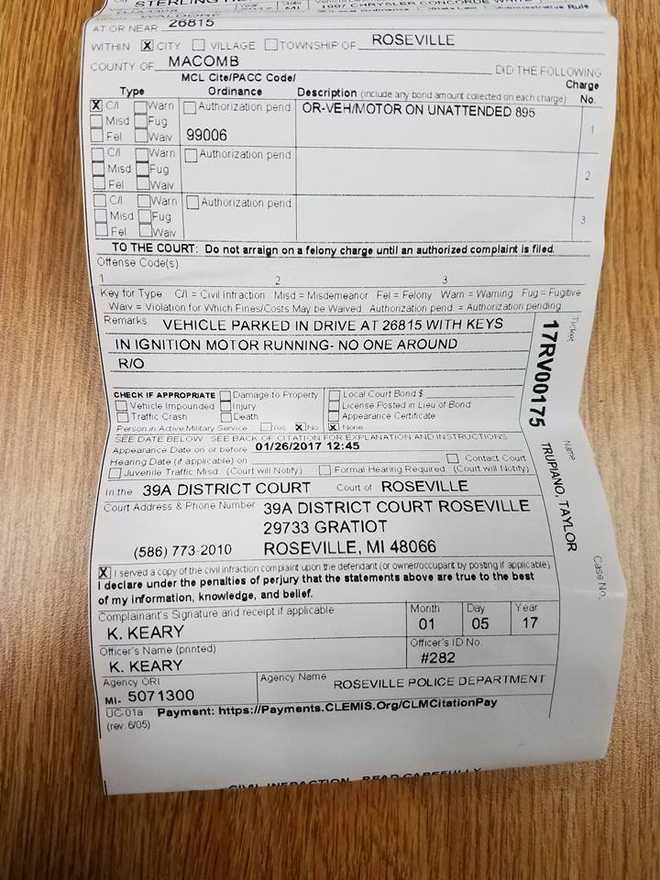 STERLING
1997 CHRYSLER CONCORDE WHITE
Administrative Rule
AT OR NEAR 26815
WITHIN X CITY VILLAGE TOWNSHIP OF ROSEVILLE
COUNTY OF MACOMB DID THE FOLLOWING
Type MCL Cite/PACC Code/ Ordinance Description (include any bond amount collected on each charge) Charge No.
X C/I Warn Authorization pend OR-VEH/MOTOR ON UNATTENDED 895 1
Misd Fug
Fel Waiv 99006
C/I Warn Authorization pend
Misd Fug 2
Fel Waiv
C/I Warn Authorization pend
Misd Fug 3
Fel Waiv
TO THE COURT: Do not arraign on a felony charge until an authorized complaint is filed.
Offense Code(s)
1 2 3
Key for Type C/I = Civil Infraction Misd = Misdemeanor Fel = Felony Warn = Warning Fug = Fugitive
Waiv = Violation for Which Fines/Costs May be Waived Authorization pend. = Authorization pending
Remarks VEHICLE PARKED IN DRIVE AT 26815 WITH KEYS
IN IGNITION MOTOR RUNNING- NO ONE AROUND
R/O
CHECK IF APPROPRIATE Damage to Property Local Court Bond $
Vehicle Impounded Injury License Posted in Lieu of Bond
Traffic Crash Death Appearance Certificate
Person in Active Military Service Yes X No X None
SEE DATE BELOW SEE BACK OF CITATION FOR EXPLANATION AND INSTRUCTIONS
Appearance Date on or before 01/26/2017 12:45
Hearing Date (if applicable) on Contact Court
Juvenile Traffic Misd. (Court will Notify) Formal Hearing Required (Court will Notify)
In the 39A DISTRICT COURT Court of ROSEVILLE
Court Address & Phone Number 39A DISTRICT COURT ROSEVILLE
29733 GRATIOT
(586) 773-2010 ROSEVILLE, MI 48066
X I served a copy of the civil infraction complaint upon the defendant (or owner/occupant by posting if applicable)
I declare under the penalties of perjury that the statements above are true to the best
of my information, knowledge, and belief.
Complainant's Signature and receipt if applicable Month Day Year
K. KEARY 01 05 17
Officer's Name (printed) Officer's ID No.
K. KEARY #282
Agency ORI Agency Name ROSEVILLE POLICE DEPARTMENT
MI- 5071300
UC-01a Payment: https://Payments.CLEMIS.Org/CLMCitationPay
(rev. 6/05)
CIVIL INFRACTION READ CAREFULLY
Ticket 17RV00175
Name TRUPIANO, TAYLOR
Case No.